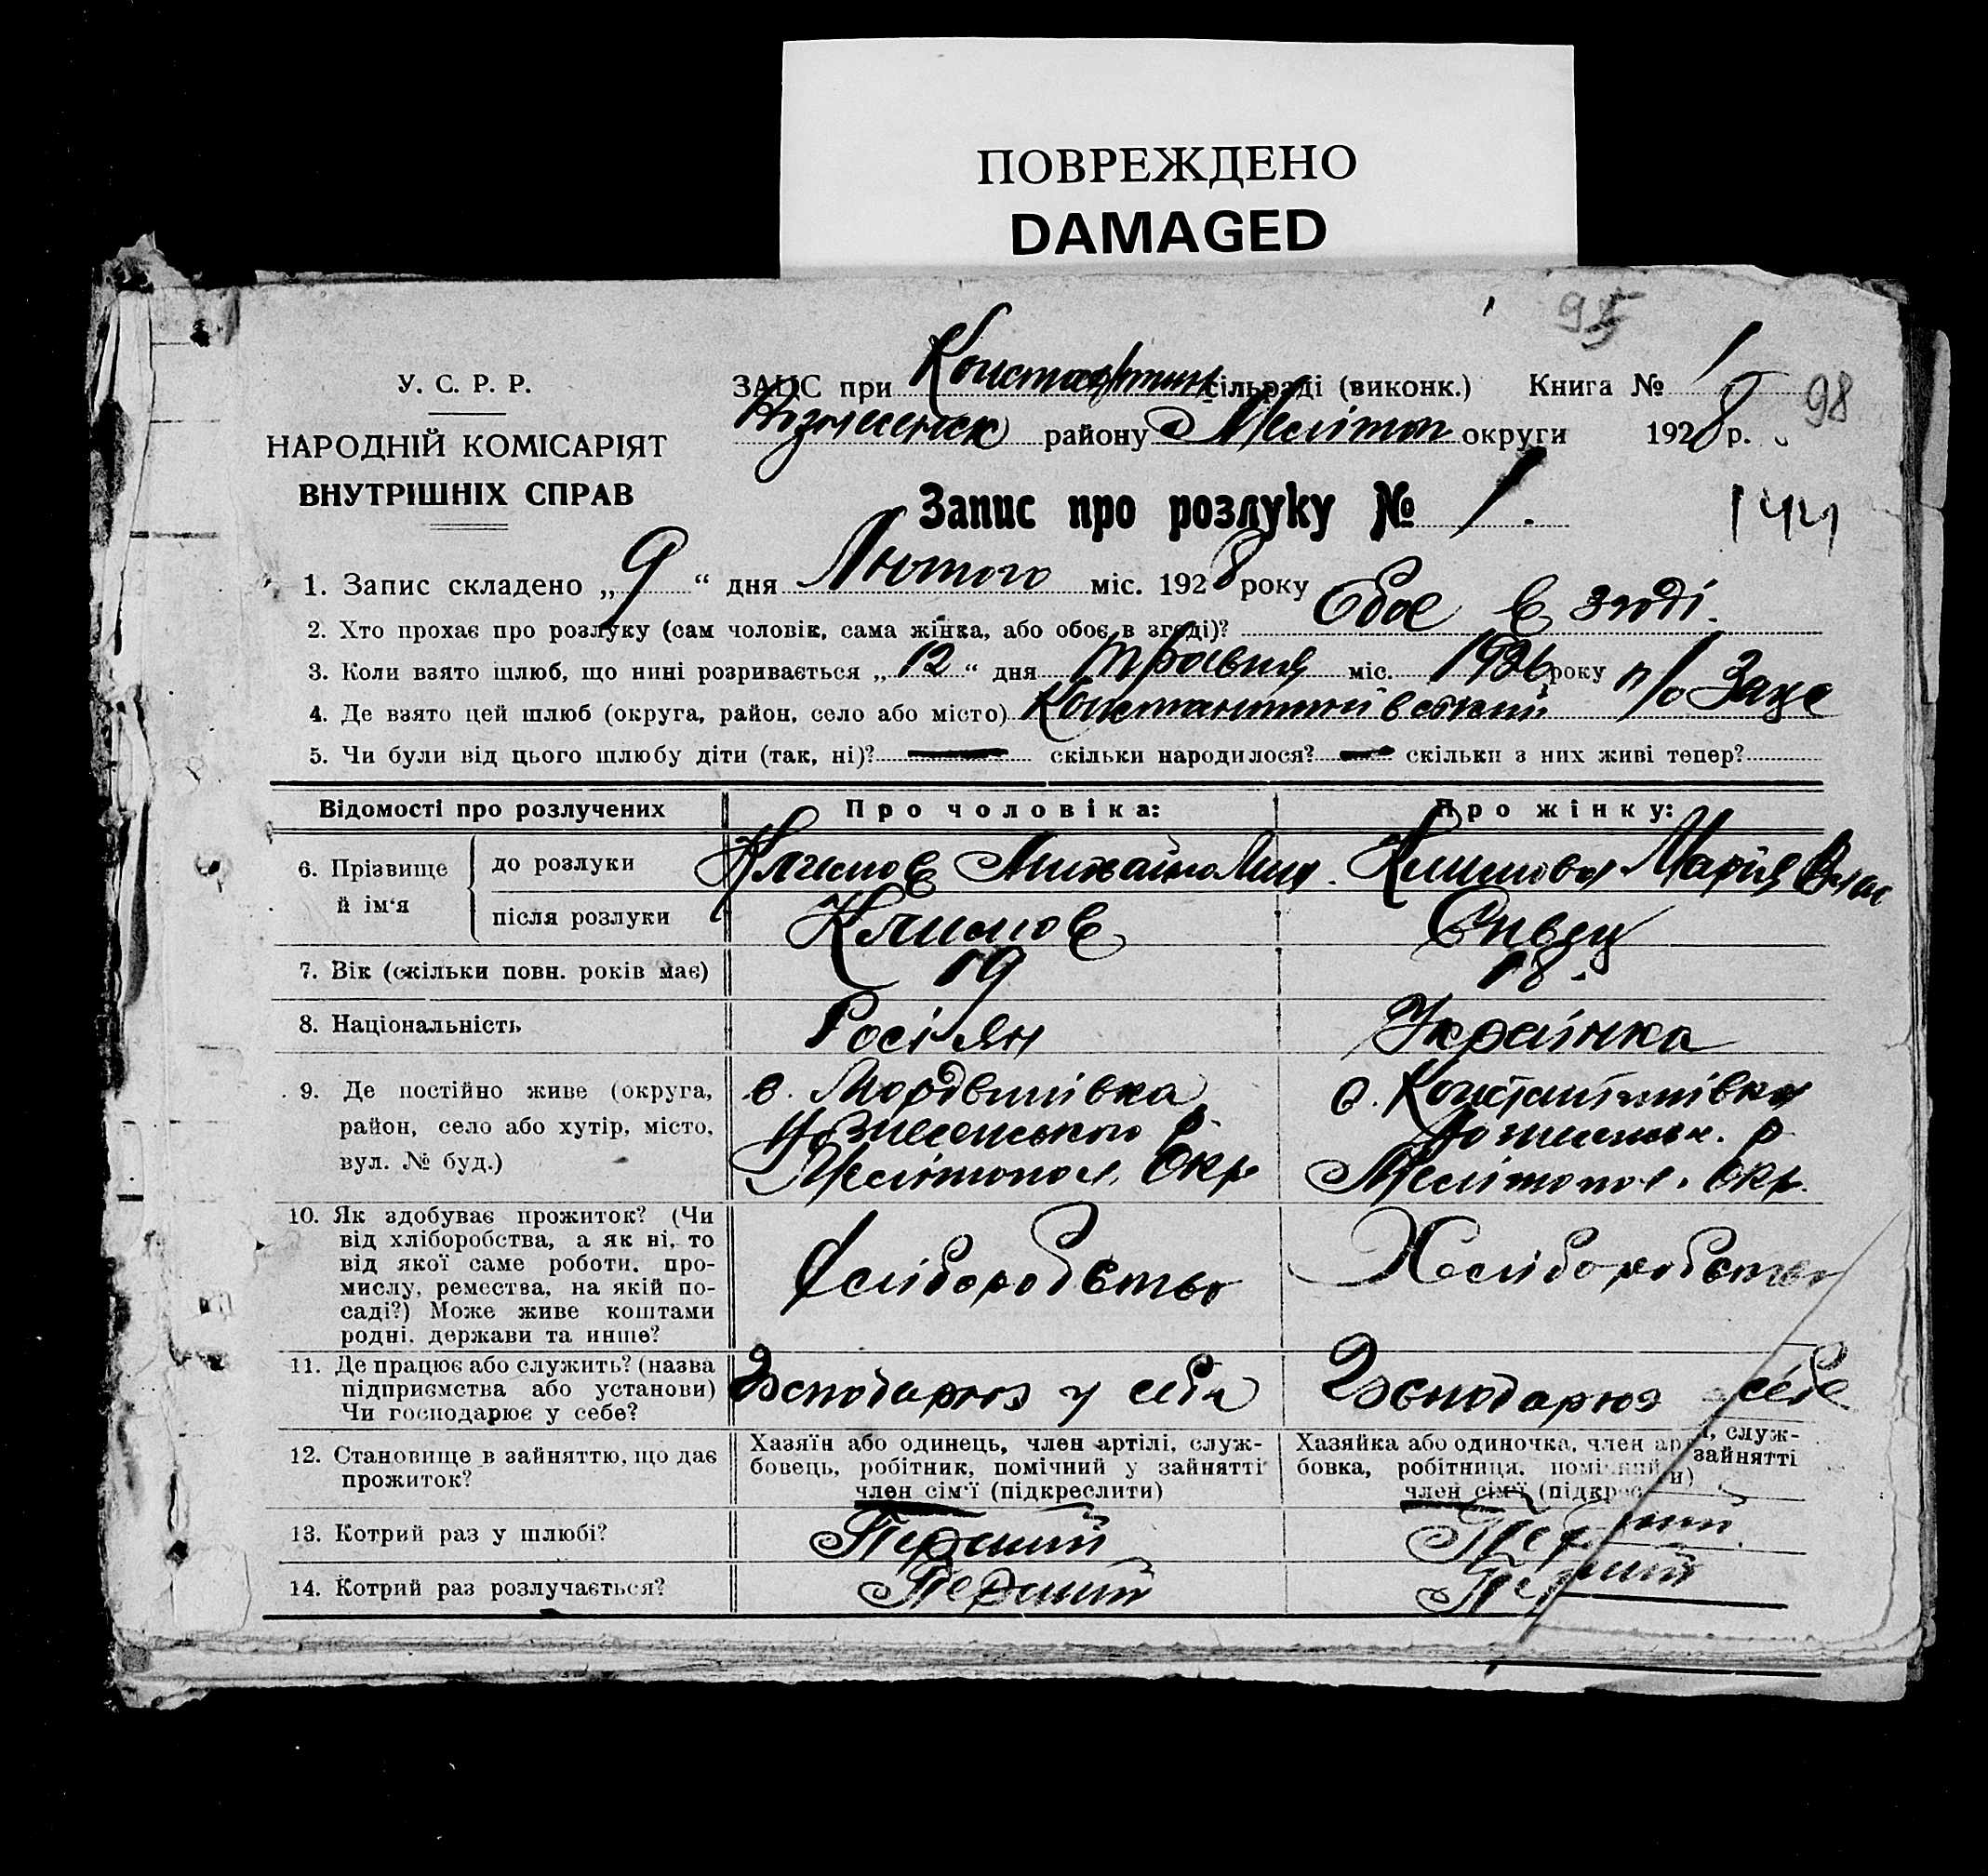 ПОВРЕЖДЕНО
DAMAGED
95
У. С. Р. Р.
НАРОДНІЙ КОМІСАРІЯТ
ВНУТРІШНІХ СПРАВ
ЗАЦС при Константин сільраді (виконк.) Книга № 1
98
району Меліtop округи 1928 р.
Запис про розлуку № 1.
144
1. Запис складено „9“ дня Лютого міс. 1928 року
2. Хто прохає про розлуку (сам чоловік, сама жінка, або обоє в згоді)? Обое в згоді.
3. Коли взято шлюб, що нині розривається „12“ дня травня міс. 1926 року
4. Де взято цей шлюб (округа, район, село або місто)
5. Чи були від цього шлюбу діти (так, ні)? — скільки народилося? — скільки з них живі тепер?
Відомості про розлучених Про чоловіка: Про жінку:
6. Прізвище й ім'я
до розлуки Климов Михайло Мих. Климова Марія
після розлуки Климов
7. Вік (скільки повн. років має) 19 18.
8. Національність Росіян Українка
9. Де постійно живе (округа, район, село або хутір, місто, вул. № буд.)
с. Мордвинівка
Вознесенського р.
Мелітопол. Окр
с. Константинівка
р.
Мелітопол. Окр.
10. Як здобуває прожиток? (Чи від хліборобства, а як ні, то від якої саме роботи, промислу, ремества, на якій посаді?) Може живе коштами родні, держави та инше?
Хліборобство Хліборобство
11. Де працює або служить? (назва підприємства або установи) Чи господарює у себе?
Господарює у себе Господарює у себе
12. Становище в зайняттю, що дає прожиток?
Хазяїн або одинець, член артілі, служ-
бовець, робітник, помічний у зайнятті
член сім'ї (підкреслити)
Хазяйка або одиночка, член служ-
бовка, робітниця, зайнятті
член сім'ї
13. Котрий раз у шлюбі? Перший Перший
14. Котрий раз розлучається? Перший Перший